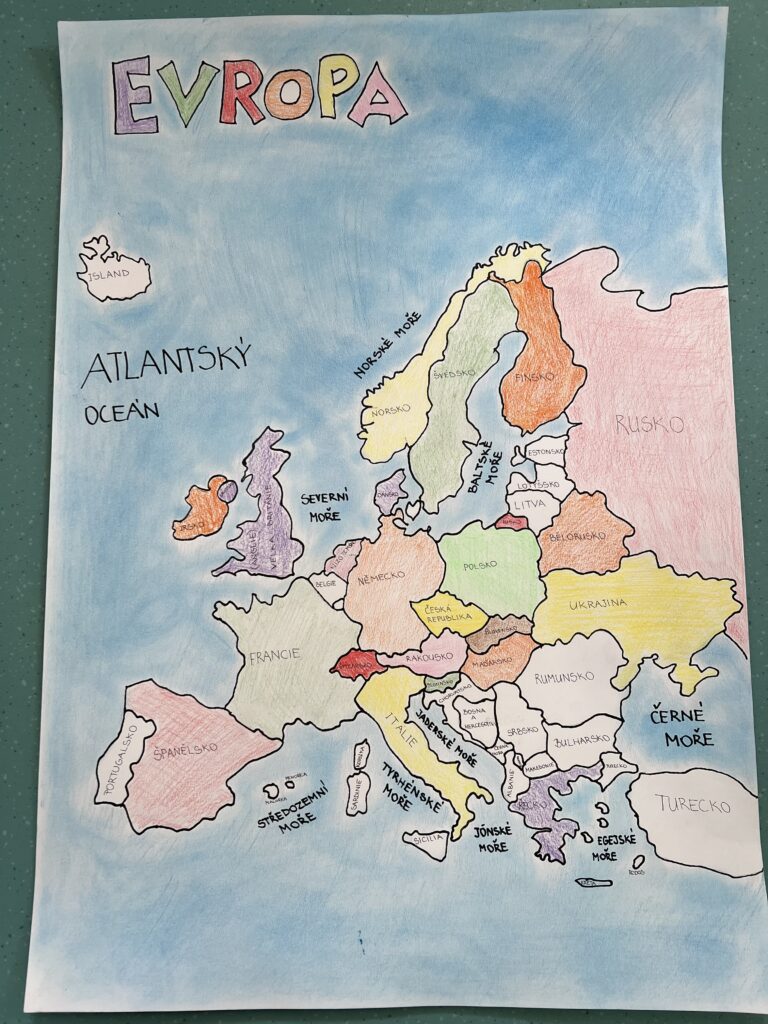 EVROPA
ISLAND
ATLANTSKÝ
OCEÁN
NORSKÉ MOŘE
NORSKO
ŠVÉDSKO
FINSKO
RUSKO
BALTSKÉ
MOŘE
ESTONSKO
LOTYŠSKO
LITVA
RUSKO
BĚLORUSKO
IRSKO
ANGLIE
VELKÁ BRITÁNIE
SEVERNÍ
MOŘE
DÁNSKO
BELGIE
NĚMECKO
POLSKO
UKRAJINA
ČESKÁ
REPUBLIKA
SLOVENSKO
FRANCIE
ŠVÝCARSKO
RAKOUSKO
MAĎARSKO
RUMUNSKO
SLOVINSKO
CHORVATSKO
BOSNA
A
HERCEGOVINA
SRBSKO
ČERNÉ
MOŘE
BULHARSKO
ČERNÁ
HORA
MAKEDONIE
ALBÁNIE
ŘECKO
TURECKO
TURECKO
PORTUGALSKO
ŠPANĚLSKO
ITALIE
JADERSKÉ MOŘE
TYRHÉNSKÉ
MOŘE
KORSIKA
SARDINIE
SICILIA
MENORCA
MALLORCA
STŘEDOZEMNÍ
MOŘE
JÓNSKÉ
MOŘE
EGEJSKÉ
MOŘE
RODOS